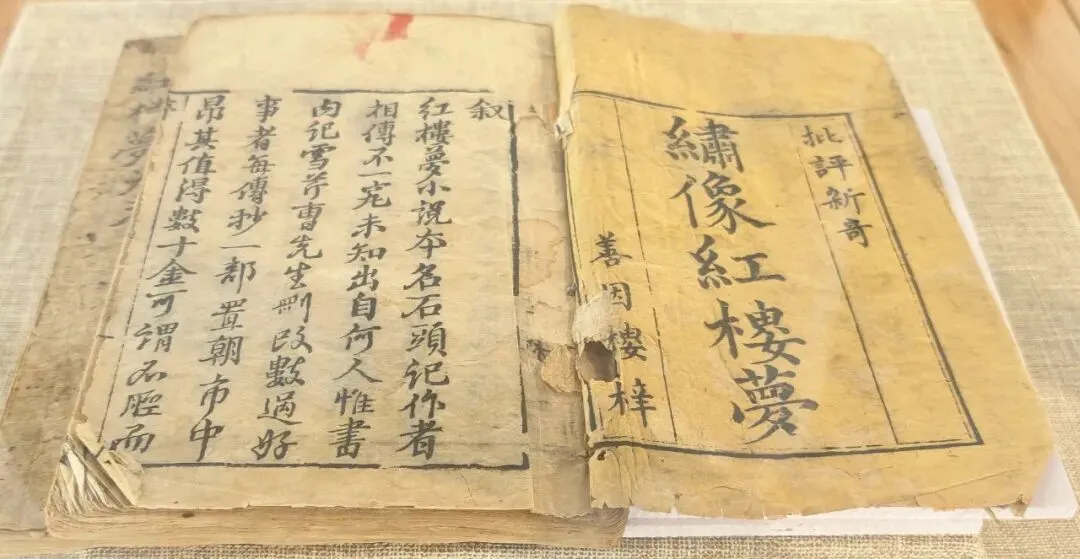 批評新奇
繡像紅樓夢
善因樓梓
叙
红樓夢小说本名石頭记作者
相傳不一究未知出自何人惟書
内记雪芹曹先生刪改數過好
事者每傳抄一部置朝市中
昂其值得數十金可謂不脛而